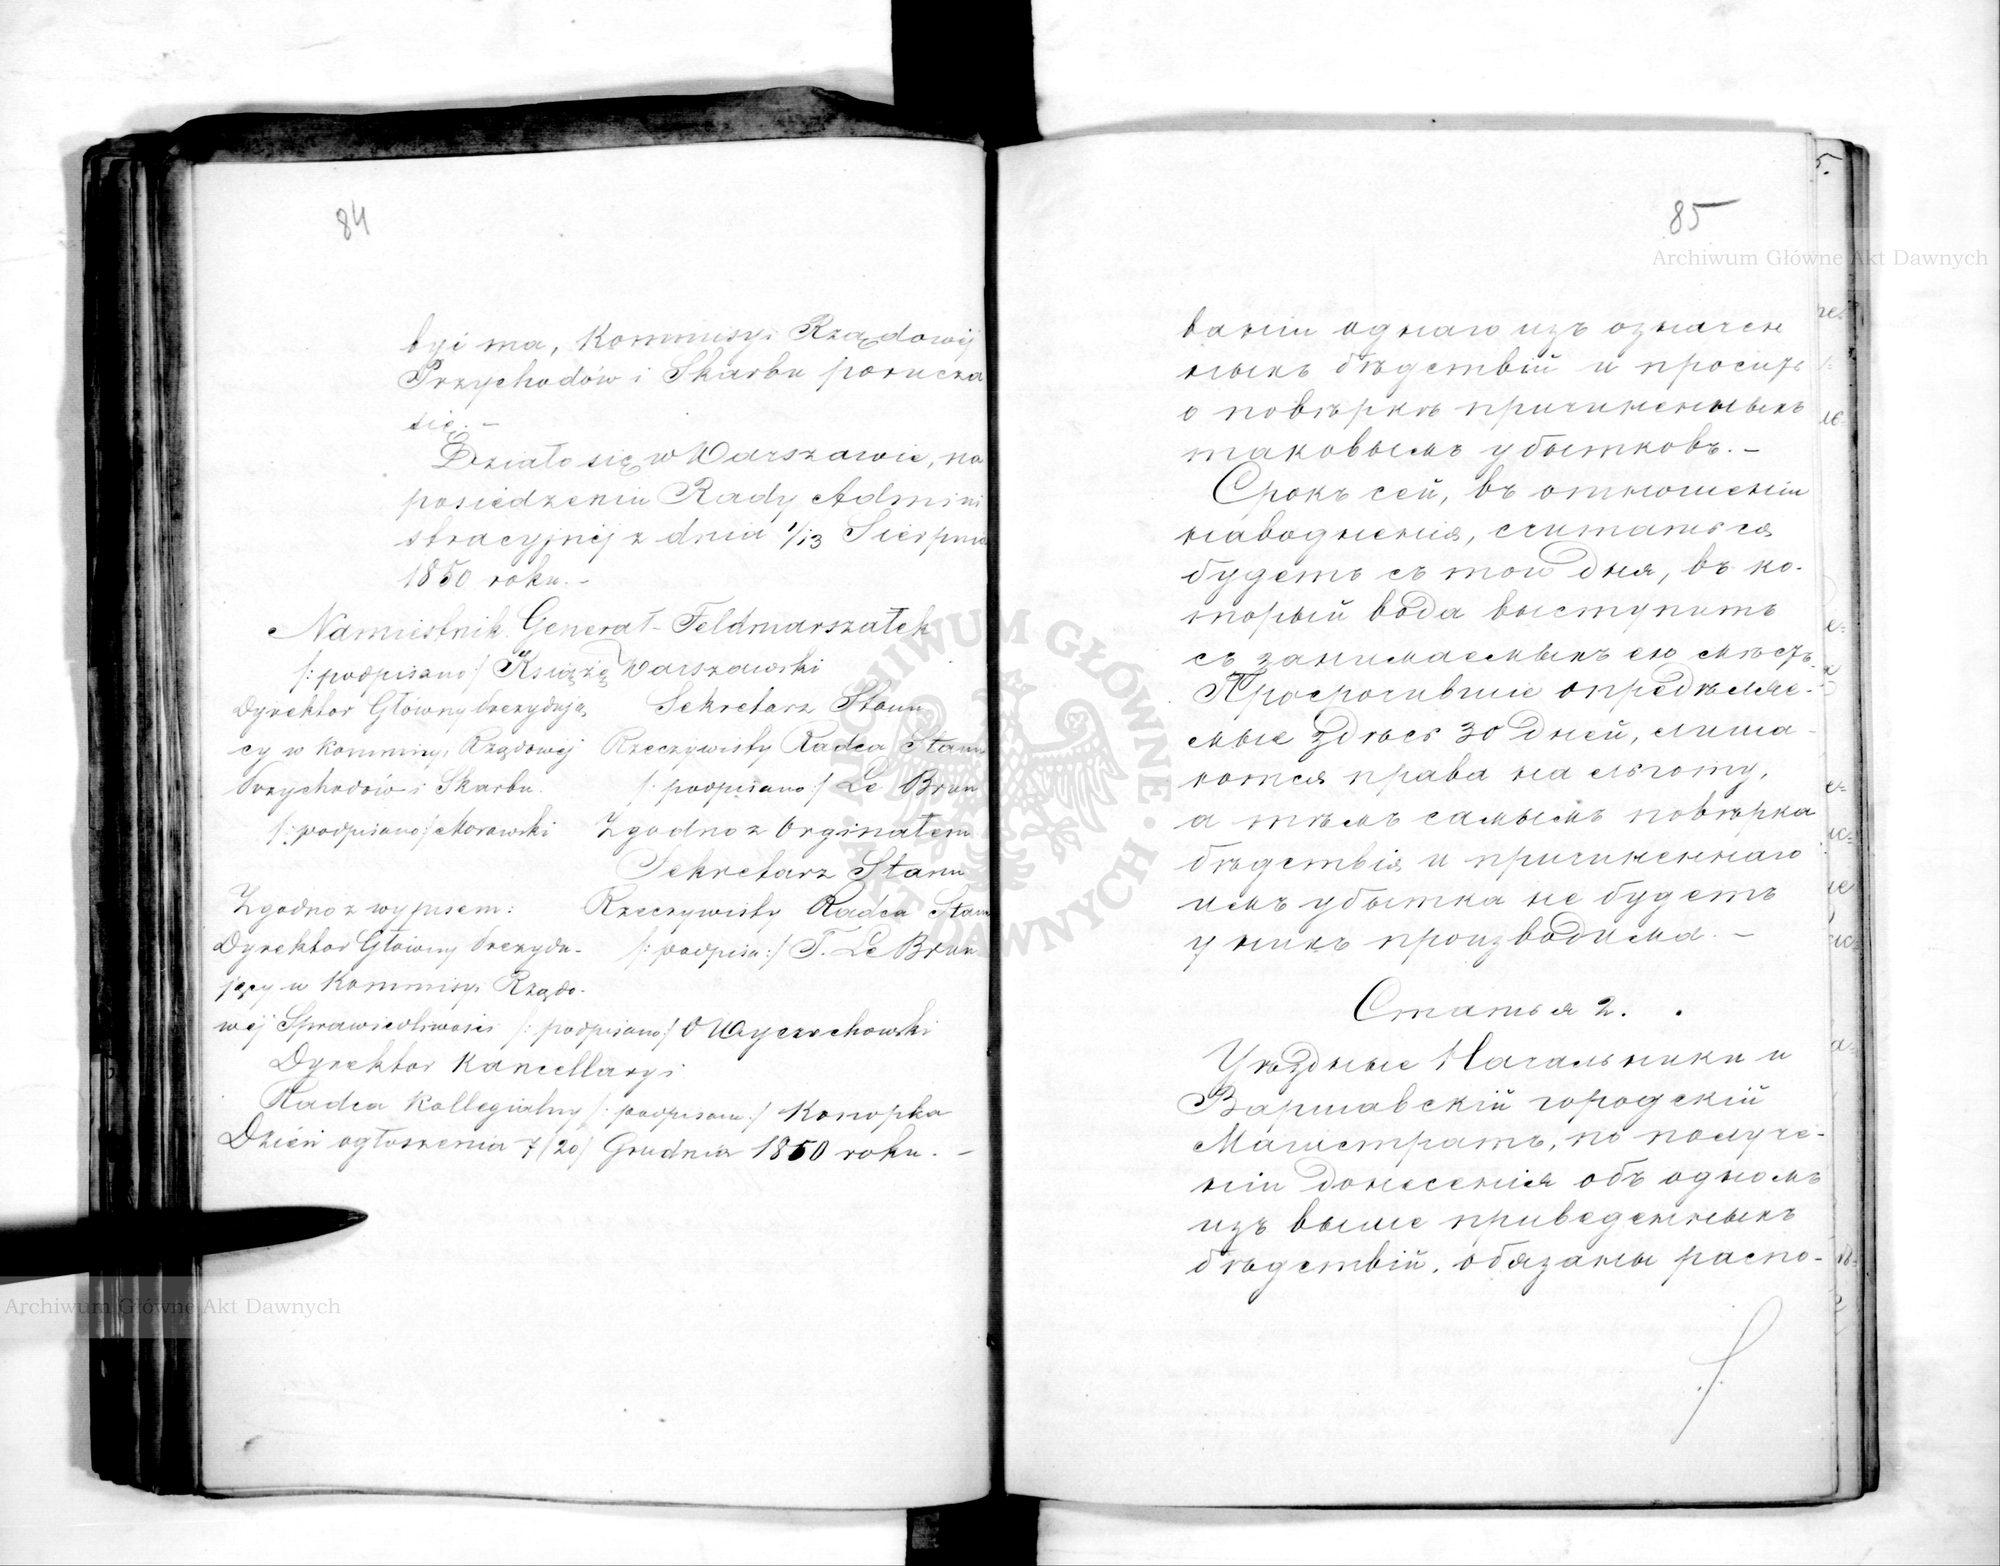 84
być ma, Kommisyi Rządowéj
Przychodów i Skarbu porucza
się. –
Działo się w Warszawie, na
posiedzeniu Rady Admini
stracyjnéj z dnia 1/13 Sierpnia
1850 roku. –
Namiestnik Generał-Feldmarszałek
/: podpisano :/ Książę Warszawski
Dyrektor Główny Prezydują
cy w Kommisyi Rządowéj
Przychodów i Skarbu.
/: podpisano :/ Morawski
Sekretarz Stanu
Rzeczywisty Radca Stanu
/: podpisano :/ Le Brun
Zgodno z Orginałem
Sekretarz Stanu
Rzeczywisty Radca Stanu
/: podpisa :/ T. Le Brun
Zgodno z wypisem:
Dyrektor Główny Prezydu-
jący w Kommisyi Rządo-
wéj Sprawiedliwości /: podpisano :/ O Wyczechowski
Dyrektor Kancellaryi
Radca Kollegialny /: podpisano :/ Konopka
Dzień ogłoszenia 7/20/ Grudnia 1850 roku. –
85
ваніи одного изъ означен
ныхъ бѣдствій и просить
о повѣркѣ причиненныхъ
таковымъ убытковъ. –
Срокъ сей, въ отношеніи
наводненія, считаться
будетъ съ того дня, въ ко-
торый вода выступитъ
съ занимаемыхъ ею мѣстъ.
Просрочившіе опредѣляе-
мые здѣсь 30 дней, лиша-
ются права на льготу,
а тѣмъ самымъ повѣрка
бѣдствія и причиненнаго
имъ убытка не будетъ
у нихъ производима. –
Статья 2.
Уѣздные Начальники и
Варшавскій городскій
Магистратъ, по получе-
ніи донесенія объ одномъ
изъ выше приведенныхъ
бѣдствій, обязаны распо-
Archiwum Główne Akt Dawnych
Archiwum Główne Akt Dawnych
ARCHIWUM GŁÓWNE AKT DAWNYCH